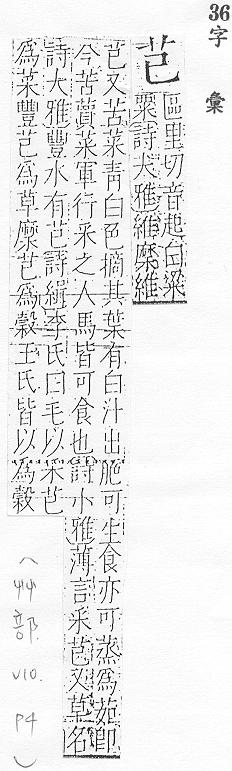 36
字彙
芑
區里切音起白粱
粟詩大雅維穈維
芑又苦菜靑白色摘其葉有白汁出肥可生食亦可蒸爲茹卽
今苦蕒菜軍行采之人馬皆可食也詩小雅薄言采芑又草名
詩大雅豐水有芑詩緝李氏曰毛以采芑
爲菜豐芑爲草穈芑爲穀王氏皆以爲穀
(艸部.
v10.
P4)